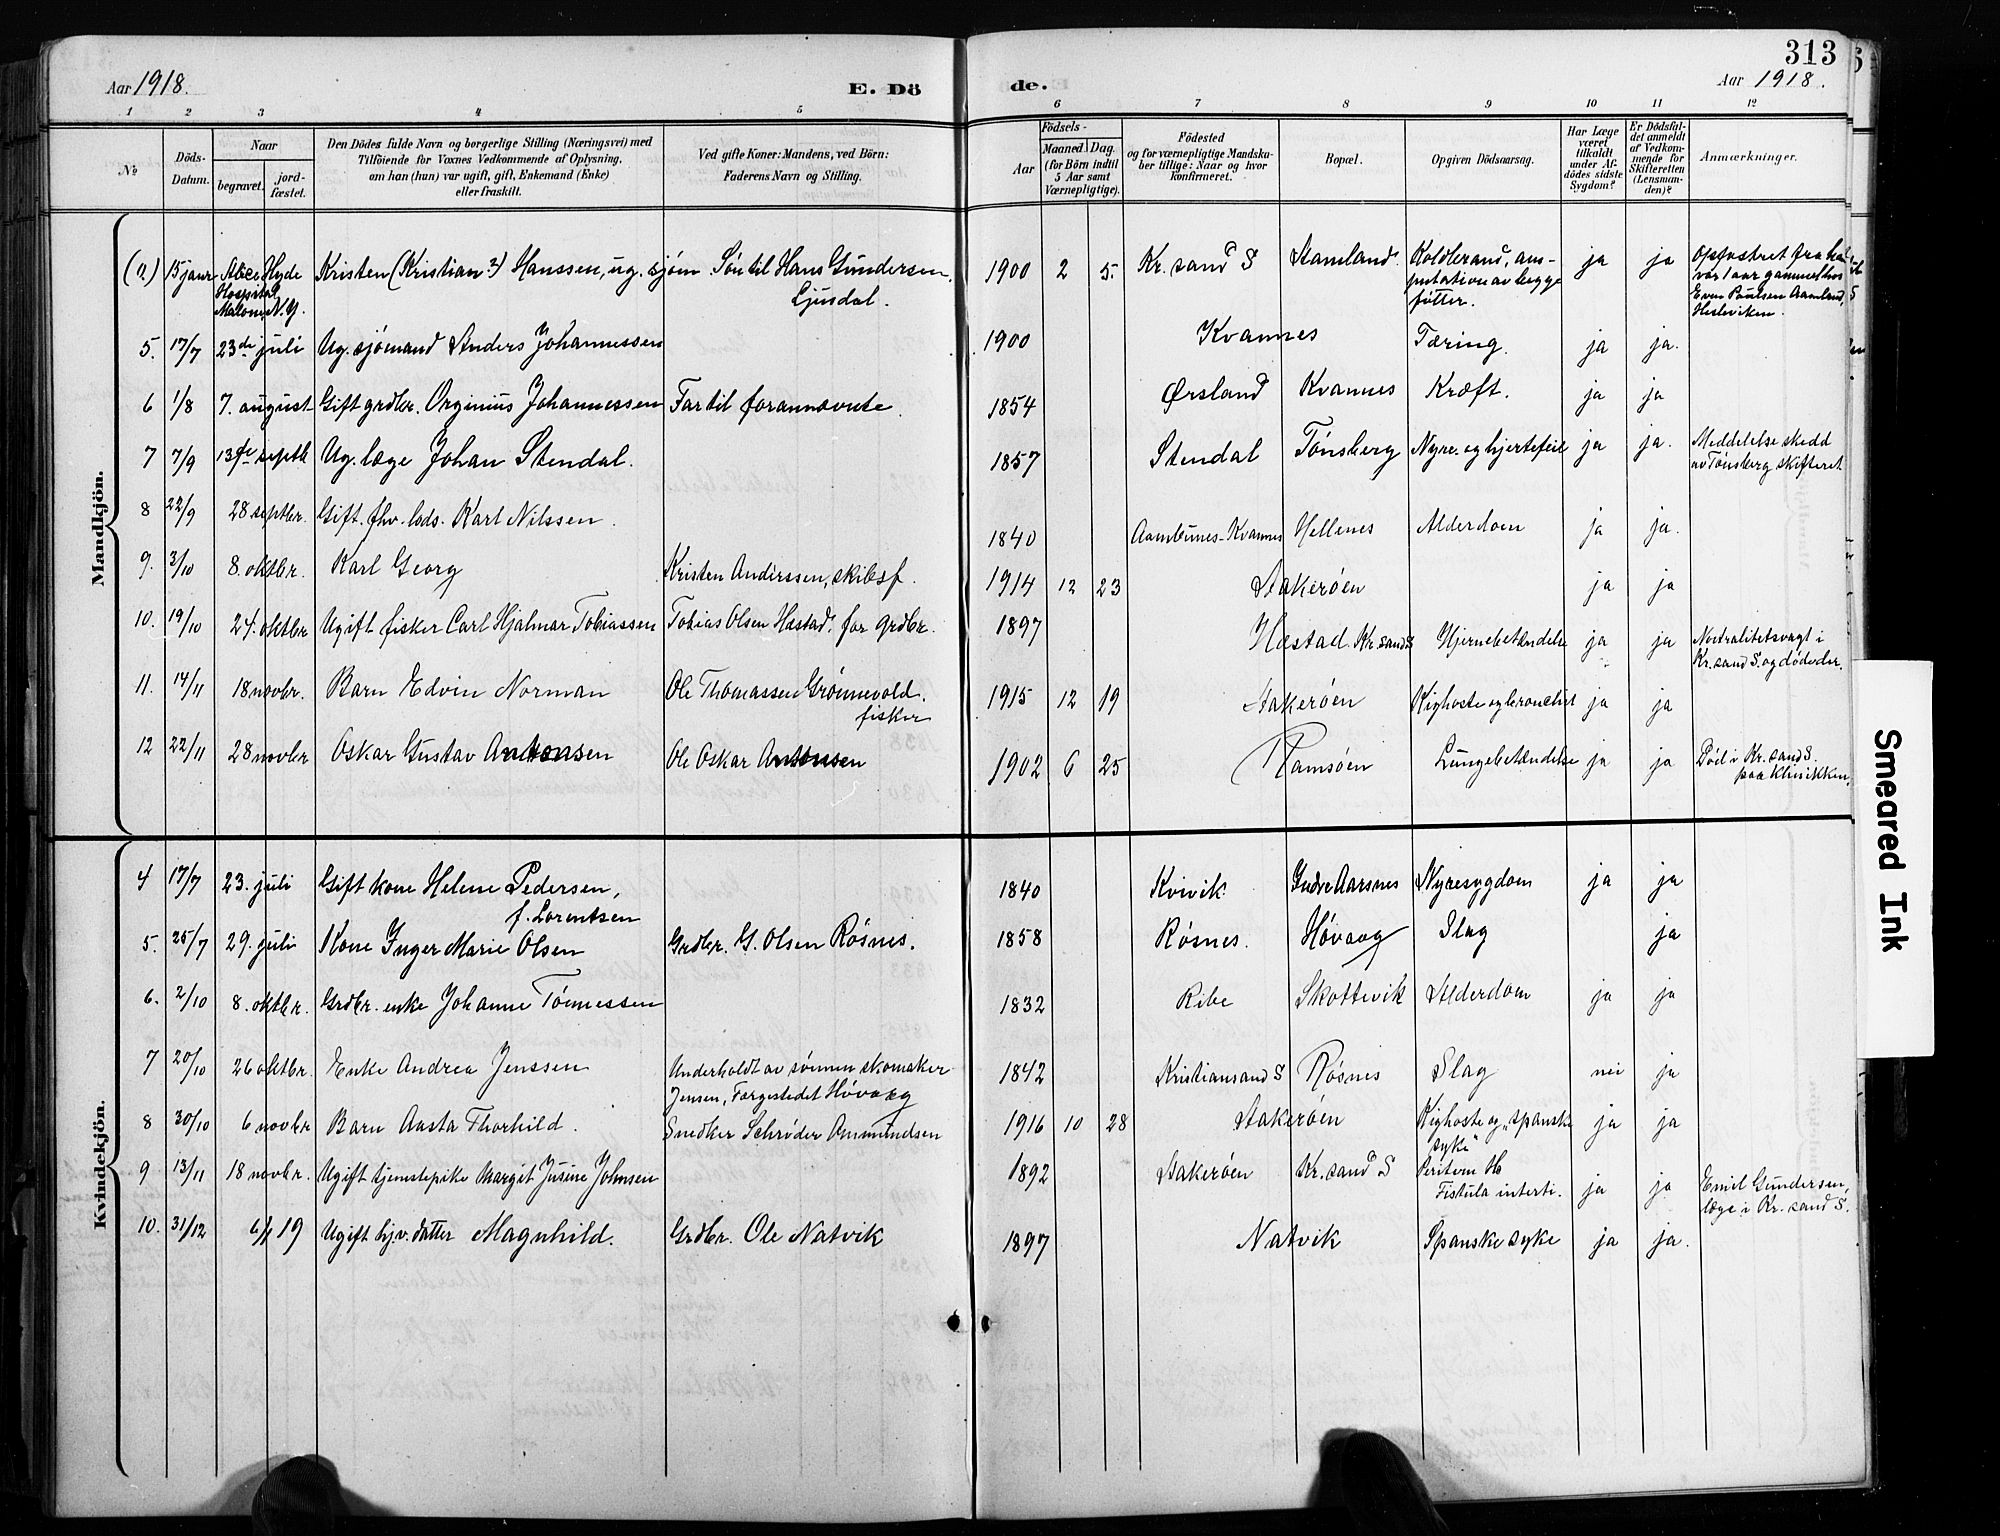 313
Aar 1918. E. Dö de. Aar 1918.
1 2 3 4 5 6 7 8 9 10 11 12
No
Döds-Datum.
Naar
begravet.
jordfæstet.
Den Dödes fulde Navn og borgerlige Stilling (Næringsvei) med
Tilföiende for Voxnes Vedkommende af Oplysning,
om han (hun) var ugift, gift, Enkemand (Enke)
eller fraskilt.
Ved gifte Koner: Mandens, ved Börn:
Faderens Navn og Stilling.
Födsels-
Aar
Maaned Dag.
(for Börn indtil
5 Aar samt
Værnepligtige).
Födested
og for værnepligtige Mandska-
ber tillige: Naar og hvor
konfirmeret.
Bopæl.
Opgiven Dödsaarsag.
Har Læge
været
tilkaldt
under Af-
dödes sidste
Sygdom?
Er Dödsfal-
det anmeldt
af Vedkom-
mende for
Skifteretten
(Lensman-
den)?
Anmærkninger.
Mandkjön.
15 januar Alice Hyde Hospital Malone, N.Y. Kristen (Kristian?) Hanssen, ug. sjøm. Søn til Hans Gundersen, Ljusdal. 1900 2 5. Kr.sand S Aamland. Koldbrand, amputation av begge føtter. ja ja Opfostret fra han var 1 aar gammel hos Even Paulsen Aamland, Hesleviken.
5. 17/7 23de juli Ug. sjømand Anders Johannessen 1900 Kvannes Tæring. ja ja.
6 1/8 7. august Gift grdbr. Orginius Johannessen Far til forannævnte. 1854 Ørsland Kvannes Kræft. ja ja
7 7/9 13de septb Ug. læge Johan Stendal. 1857 Stendal Tønsberg Nyre- og hjertefeil ja ja. Meddelelse skedd av Tønsberg skifteret
8 22/9 28 septbr. Gift. fhv. lods. Karl Nilssen. 1840 Hellenes Alderdom ja ja.
9. 3/10 8. oktbr. Karl Georg Kristen Anderssen, skibsf. 1914 12 23 Aakerøen ja ja
10. 19/10 24. oktbr Ugift fisker Carl Hjalmar Tobiassen Tobias Olsen Hæstad, for grdbr. 1897 Hæstad. Kr.sand S Hjernebetændelse ja ja Nøitralitetsvagt i Kr.sand S. og døde der.
11. 14/11 18 novbr. Barn Edvin Norman Ole Thomassen Grønnevold. fisker 1915 12 19 Aakerøen Kighoste og bronchit ja ja
12 22/11 28 novbr Oskar Gustav Antonsen Ole Oskar Antonsen 1902 6 25 Ramsøen Lungebetændelse ja ja Død i Kr.sand S. paa klinikken.
Kvindekjön.
4 17/7 23. juli Gift kone Helene Pedersen, f. Lorentsen 1840 Kvivik Indre Aarsnes Nyresygdom ja ja
5. 25/7 29. juli Kone Inger Marie Olsen Grdbr. G. Olsen Røsnes. 1858 Røsnes. Høvaag Slag ja
6. 2/10 8. oktbr. Grdbr. enke Johanne Tønnessen 1832 Ribe Skottevik Alderdom ja ja
7 20/10 26 oktbr. Enke Andrea Jenssen Underholdt av sønnen skomaker Jensen, Færgestedet Høvaag 1842 Kristiansand S Røsnes Slag nei ja
8 30/10 6 novbr Barn Aasta Thorhild. Snedker Schrøder Ommundsen 1916 10 28 Aakerøen Kighoste og "spanske syke" ja ja
9 13/11 18 novbr. Ugift tjenestepike Margit Jusine Johnsen 1892 Aakerøen Kr.sand S Fistula ja ja Emil Gundersen, læge i Kr.sand S.
10. 31/12 6/1 19 Ugift hj.v. datter Magnhild. Grdbr. Ole Natvik 1897 Natvik Spanske syke ja ja.
Smeared Ink